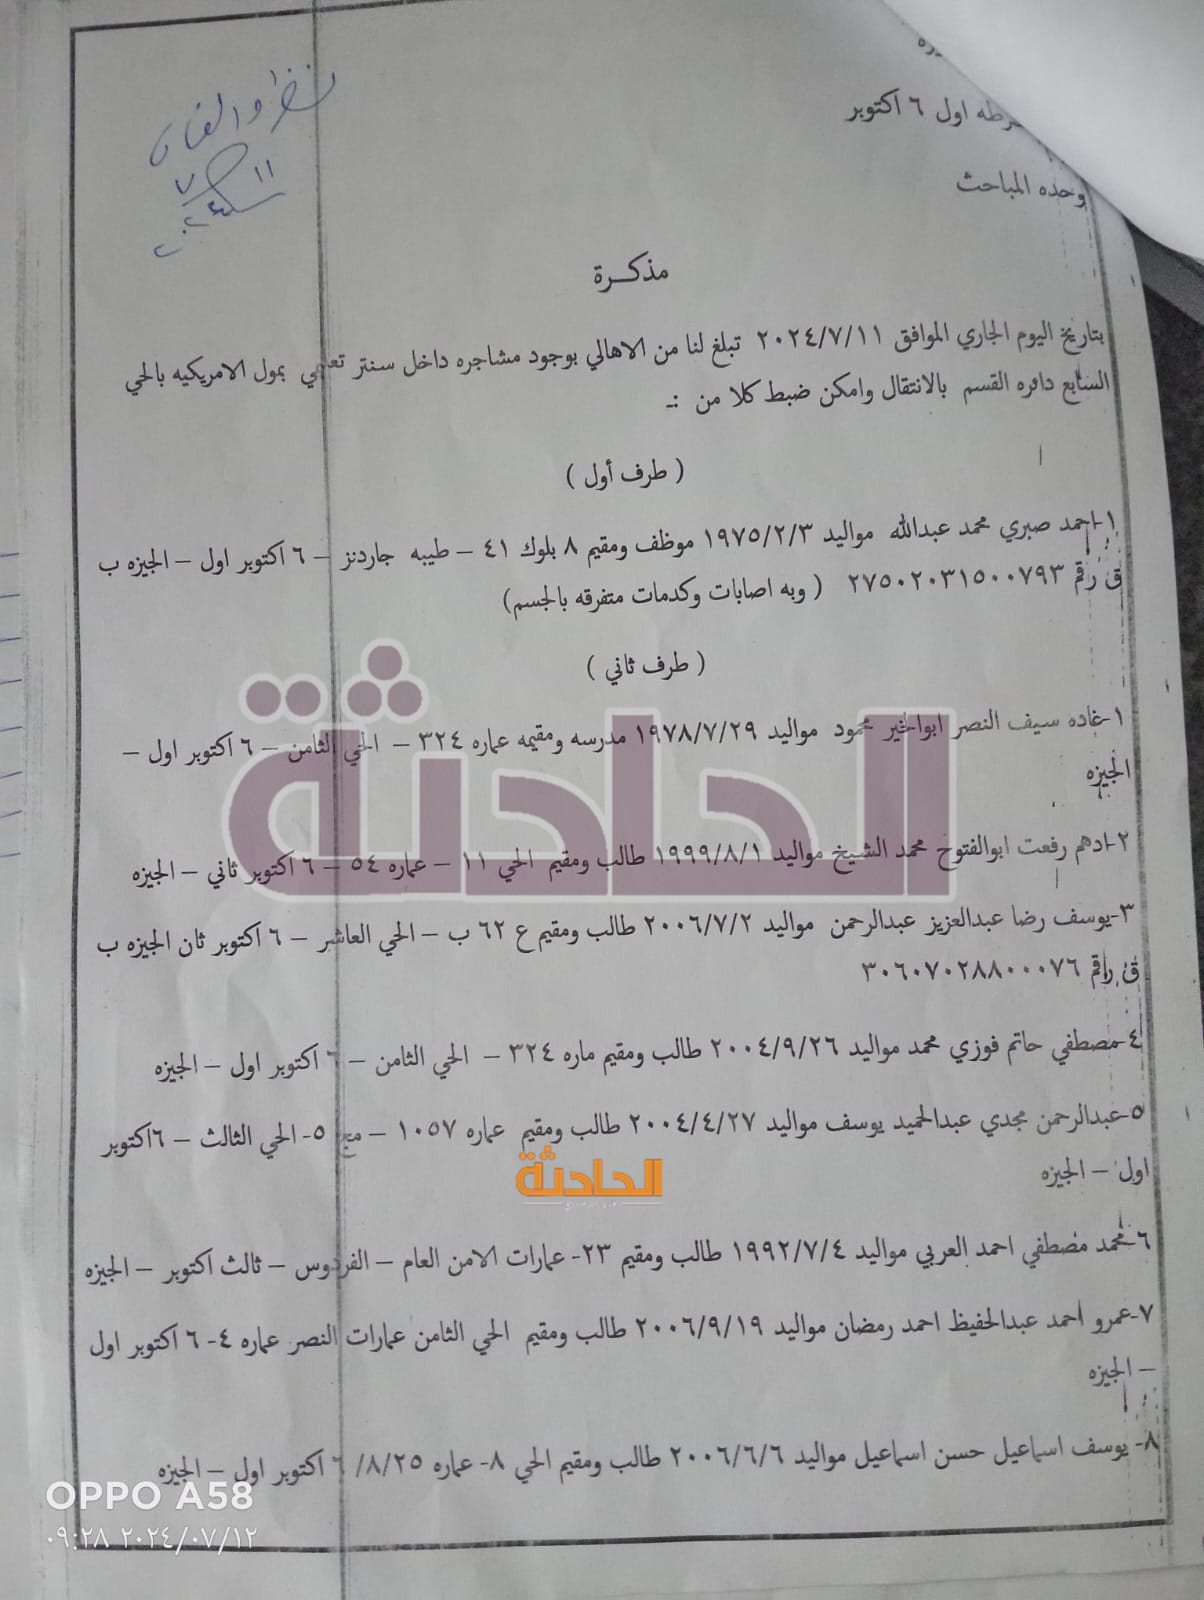 نظر وارفق
١١
٧
٢٠٢٤
شرطه اول ٦ اكتوبر
وحده المباحث
مذكـــرة
بتاريخ اليوم الجاري الموافق ٢٠٢٤/٧/١١ تبلغ لنا من الاهالي بوجود مشاجره داخل سنتر تعليمي بمول الامريكيه بالحي
السابع دائره القسم بالانتقال وامكن ضبط كلا من :ـ
( طرف أول )
١-احمد صبري محمد عبدالله مواليد ١٩٧٥/٢/٣ موظف ومقيم ٨ بلوك ٤١ – طيبه جاردنز – ٦ اكتوبر اول – الجيزه ب
ق رقم ٢٧٥٠٢٠٣١٥٠٠٧٩٣ ( وبه اصابات وكدمات متفرقه بالجسم)
( طرف ثاني )
١-غاده سيف النصر ابوالخير محمود مواليد ١٩٧٨/٧/٢٩ مدرسه ومقيمه عماره ٣٢٤ – الحي الثامن – ٦ اكتوبر اول –
الجيزه
الحادثة
٢-ادهم رفعت ابوالفتوح محمد الشيخ مواليد ١٩٩٩/٨/١ طالب ومقيم الحي ١١ – عماره ٥٤ – ٦ اكتوبر ثاني – الجيزه
٣-يوسف رضا عبدالعزيز عبدالرحمن مواليد ٢٠٠٦/٧/٢ طالب ومقيم ع ٦٢ ب – الحي العاشر – ٦ اكتوبر ثان الجيزه ب
ق رقم ٣٠٦٠٧٠٢٨٨٠٠٠٧٦
٤-مصطفي حاتم فوزي محمد مواليد ٢٠٠٤/٩/٢٦ طالب ومقيم ماره ٣٢٤ – الحي الثامن – ٦ اكتوبر اول – الجيزه
٥-عبدالرحمن مجدي عبدالحميد يوسف مواليد ٢٠٠٤/٤/٢٧ طالب ومقيم عماره ١٠٥٧ – مج ٥- الحي الثالث – ٦اكتوبر
اول – الجيزه
الحادثة
٦-محمد مصطفي احمد العربي مواليد ١٩٩٢/٧/٤ طالب ومقيم ٢٣- عمارات الامن العام – الفردوس – ثالث اكتوبر – الجيزه
٧-عمرو احمد عبدالحفيظ احمد رمضان مواليد ٢٠٠٦/٩/١٩ طالب ومقيم الحي الثامن عمارات النصر عماره ٤- ٦ اكتوبر اول
– الجيزه
٨- يوسف اسماعيل حسن اسماعيل مواليد ٢٠٠٦/٦/٦ طالب ومقيم الحي ٨- عماره ٨/٢٥/ ٦ اكتوبر اول – الجيزه
OPPO A58
٠٩:٢٨ ٢٠٢٤/٠٧/١٢